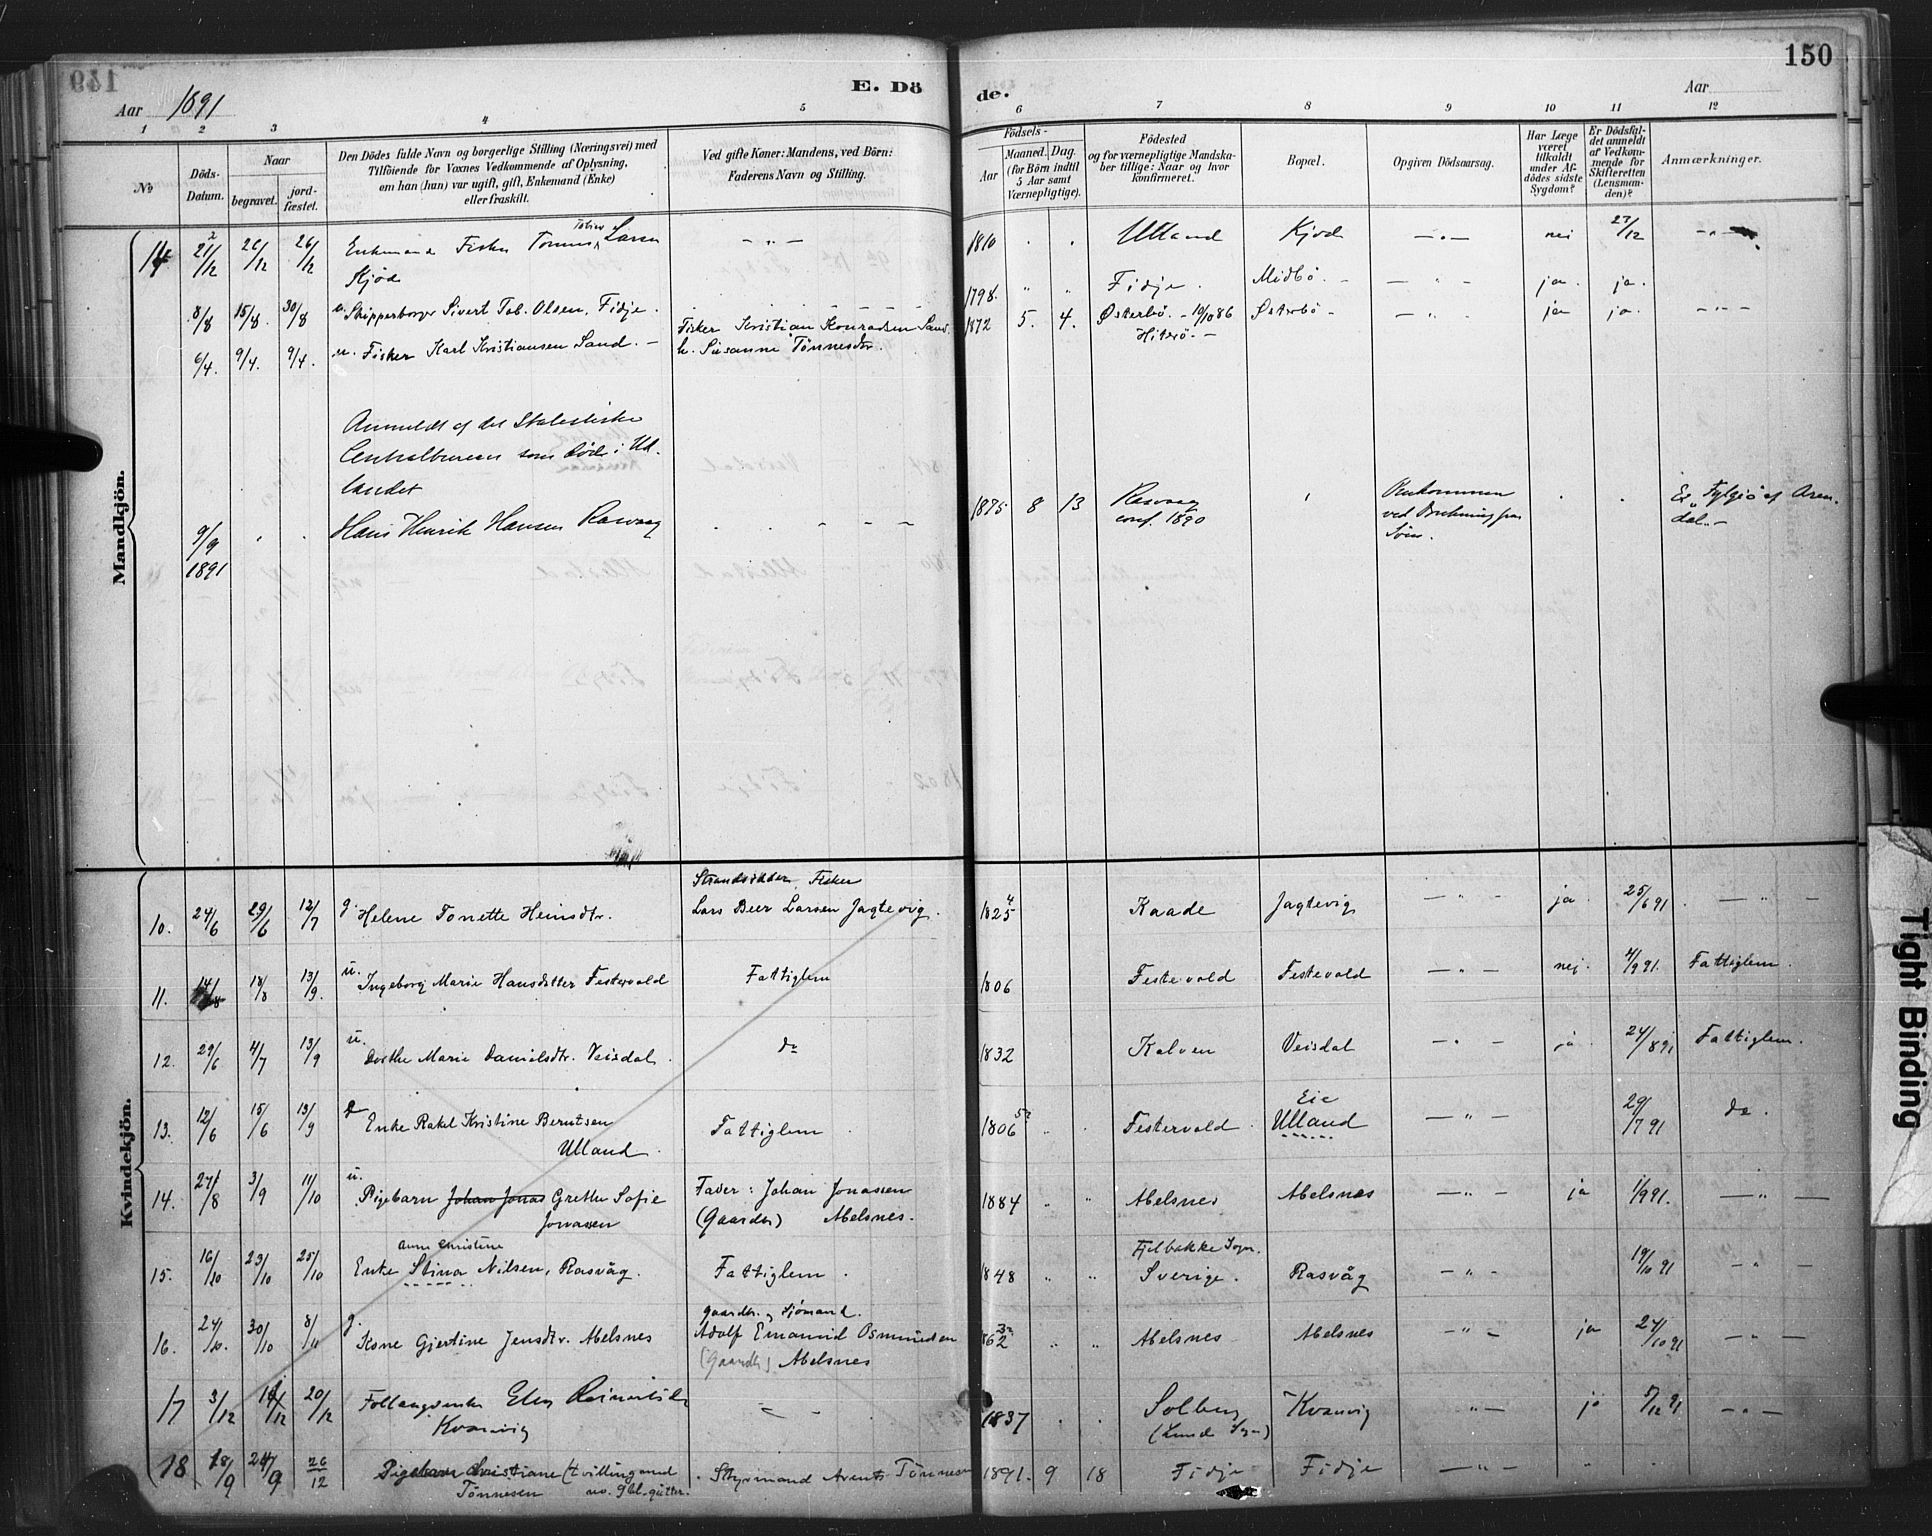 149
150
E. Dö
de.
Aar 1891
Aar
1 2 3 4 5 6 7 8 9 10 11 12
No
Döds-
Datum.
Naar
begravet.
jord-
fæstet.
Den Dödes fulde Navn og borgerlige Stilling (Næringsvei) med
Tilföiende for Voxnes Vedkommende af Oplysning,
om han (hun) var ugift, gift, Enkemand (Enke)
eller fraskilt.
Ved gifte Koner: Mandens, ved Börn:
Faderens Navn og Stilling.
Födsels-
Aar
Maaned. Dag.
(for Börn indtil
5 Aar samt
Værnepligtige).
Födested
og for værnepligtige Mandska-
ber tillige: Naar og hvor
konfirmeret.
Bopæl.
Opgiven Dödsaarsag.
Har Læge
været
tilkaldt
under Af-
dödes sidste
Sygdom?
Er Dödsfal-
det anmeldt
af Vedkom-
mende for
Skifteretten
(Lensman-
den)?
Anmærkninger.
Mandkjön.
14 21/12 26/12 Enkemand Fisker Tønnes Larsen 1810 Ulland Kjød nei 27/12
Kjød
8/8 15/8. 30/8 Skipperborger Sivert Tob. Olsen, Fidje. 1798. Fidje. Midbö ja. ja.
6/4. 9/4. 9/4. u. Fisker Karl Kristiansen Sand. Fisker Kristian Konradsen Sand. 1872 5. 4. Østerbö. 10/10 86 Østerbö ja ja.
h. Susanne Tönnesdtr. Hiterö.
Anmeldt af det Statistiske
Centralbureau som død i Ud-
landet
9/9 Hans Henrik Hansen Rasvaag 1875 8 13 Rasvaag Omkommen
1891 conf. 1890 ved
Kvindekjön.
Fisker
10. 24/6 29/6 12/7 g. Helene Tonette Heinsdtr. Lars Beer Larsen Jagtevig. 1825 Kaade Jagtevig ja 25/6 91
11. 14/8 18/8 13/9. u. Ingeborg Marie Hansdatter Festervold Fattiglem 1806 Festevold Festevold nej. 4/9 91. Fattiglem.
12. 29/6 4/7 13/9 u. Dorthe Marie Danielsdtr. Veisdal. do 1832 Kalven Veisdal ja 24/8 91 Fattiglem.
13. 12/6 15/6 13/9 Enke Rakel Kristine Berntsen Fattiglem 1806 Festervold Eie 29/7 91 do.
Ulland. Ulland
14. 27/8 3/9 11/10 u. Pigebarn Johan Jonas Grethe Sofie Fader: Johan Jonassen 1884 Abelsnes Abelsnes ja 1/9 91.
Jonassen (Gaardbr.) Abelsnes.
Anne Christine
15. 16/10 23/10 25/10 Enke Stina Nilsen, Rasvåg. Fattiglem. 1848 Fjelbakke Sogn. Sverige. Rasvåg 19/10 91
Gaardbr. og Sjömand.
16. 24/10. 30/10 8/11 g. Kone Gjertine Jensdtr. Abelsnes Adolf Emanuel Osmundsen 1862 Abelsnes Abelsnes ja 27/10 91
(Gaardb.) Abelsnes
17 3/12 20/12 Føllaugsenke Elen 1837 Solberg Kvanvig ja 5/12 91
Kvanvig (Lunde Sogn)
18 18/9 24/9 26/12 Pigebarn Christiane (tvilling Styrmand Arent Tönnesen 1891. 9 18 Fidje Fidje
Tönnesen
Tight Binding